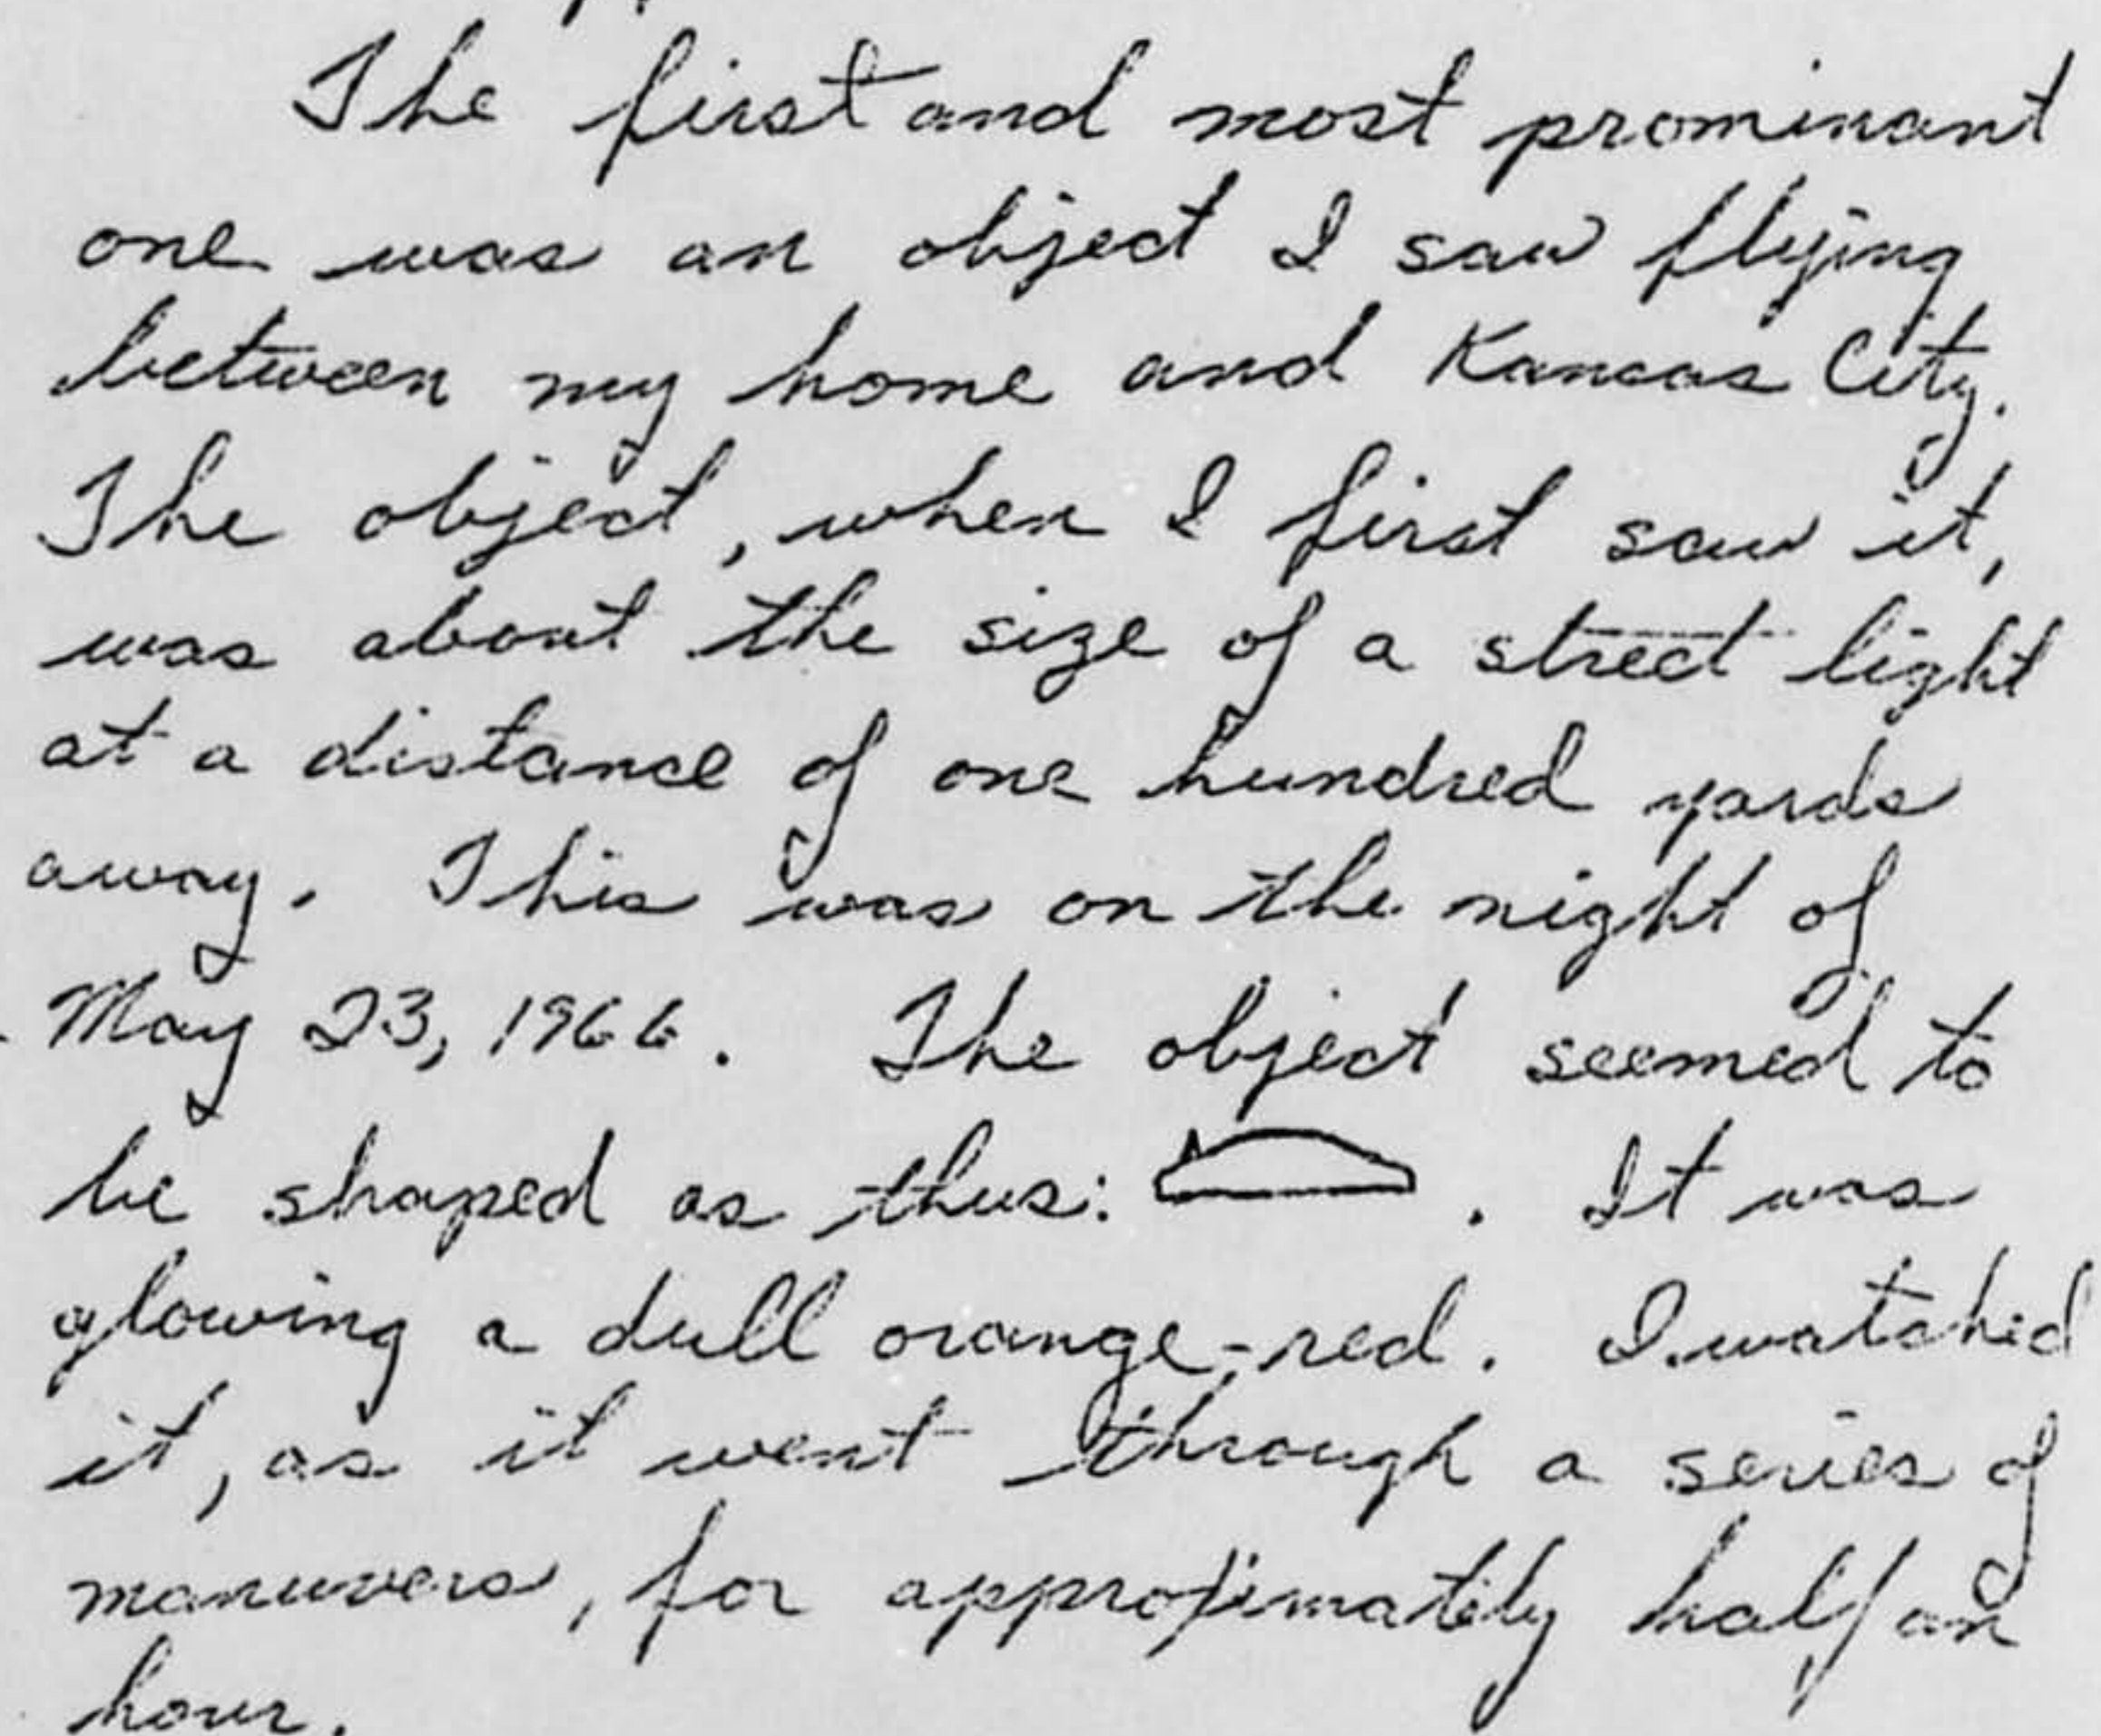 The first and most prominant
one was an object I saw flying
between my home and Kansas City.
The object, when I first saw it,
was about the size of a street light
at a distance of one hundred yards
away. This was on the night of
May 23, 1966. The object seemed to
be shaped as thus: . It was
glowing a dull orange-red. I watched
it, as it went through a series of
manuvers, for approximately half an
hour.